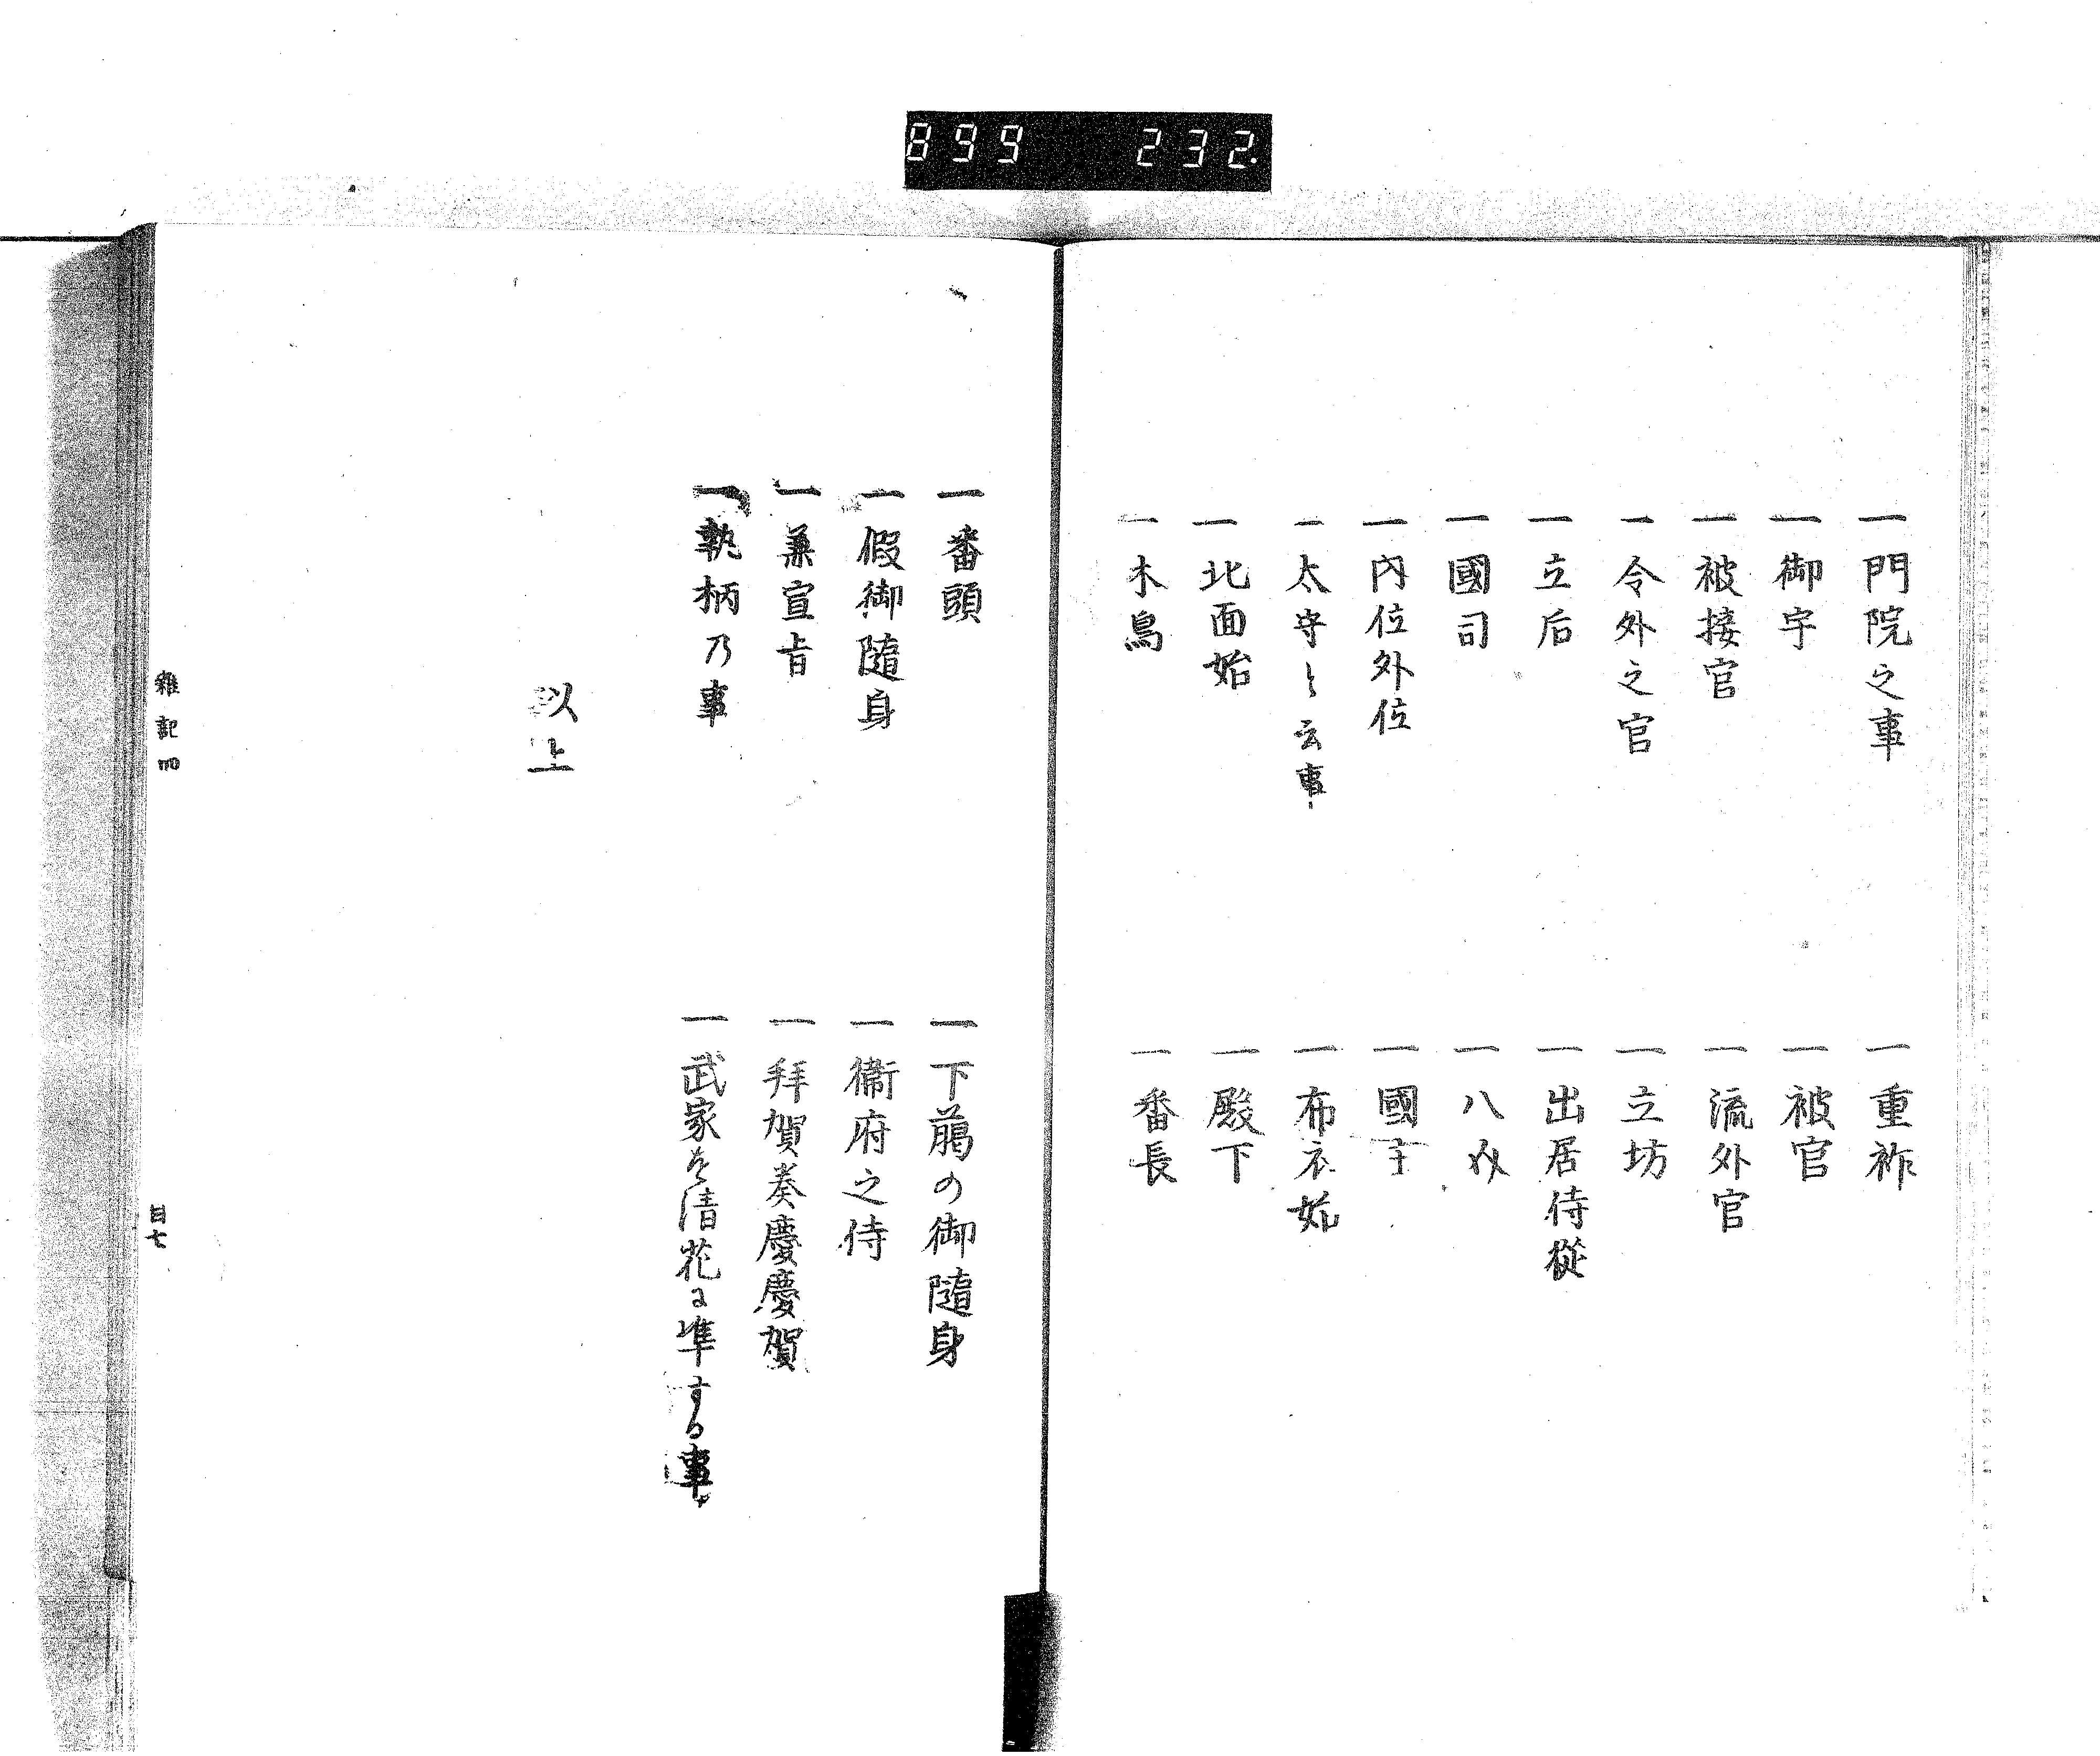 899 232
一門院之事
一重祚
一御宇
一被官
一被接官
一流外官
一令外之官
一立坊
一立后
一出居侍従
一國司
一八省
一内位外位
一國主
一太守と云事
一布衣始
一北面始
一殿下
一木鳥
一番長
一番頭
一下﨟の御隨身
一假御隨身
一衞府之侍
一兼宣旨
一拝賀奏慶慶賀
一執柄乃事
一武家を清花に準する事
以上
雜記四
目七